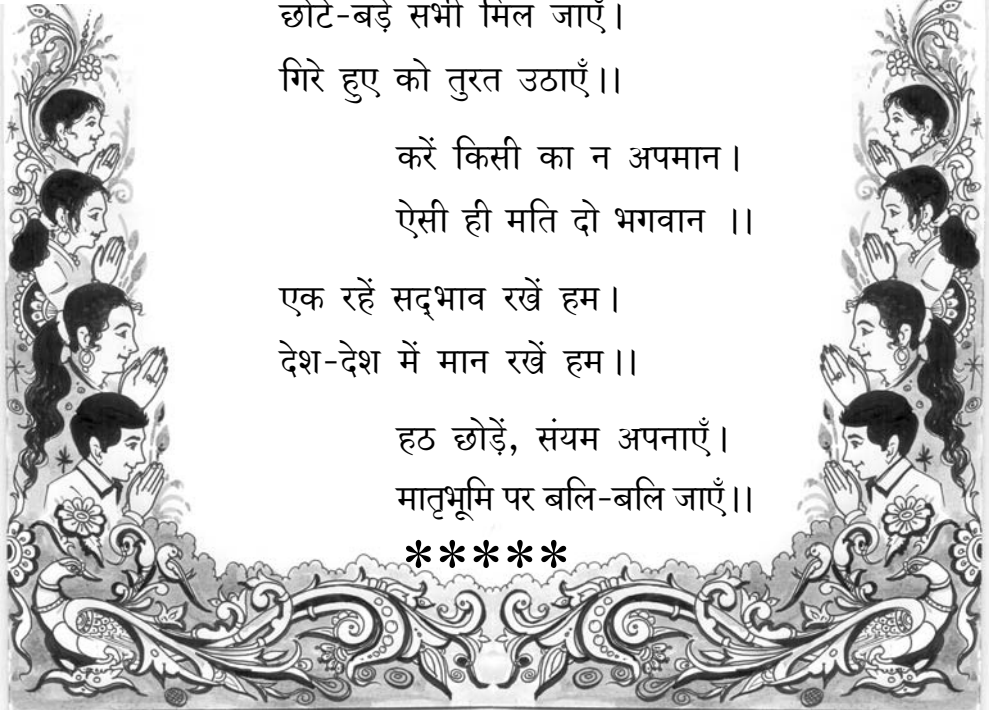 छोटे-बड़े सभी मिल जाएँ।
गिरे हुए को तुरत उठाएँ।।
करें किसी का न अपमान।
ऐसी ही मति दो भगवान ।।
एक रहें सद्‌भाव रखें हम।
देश-देश में मान रखें हम।।
हठ छोड़ें, संयम अपनाएँ।
मातृभूमि पर बलि-बलि जाएँ।।
*****